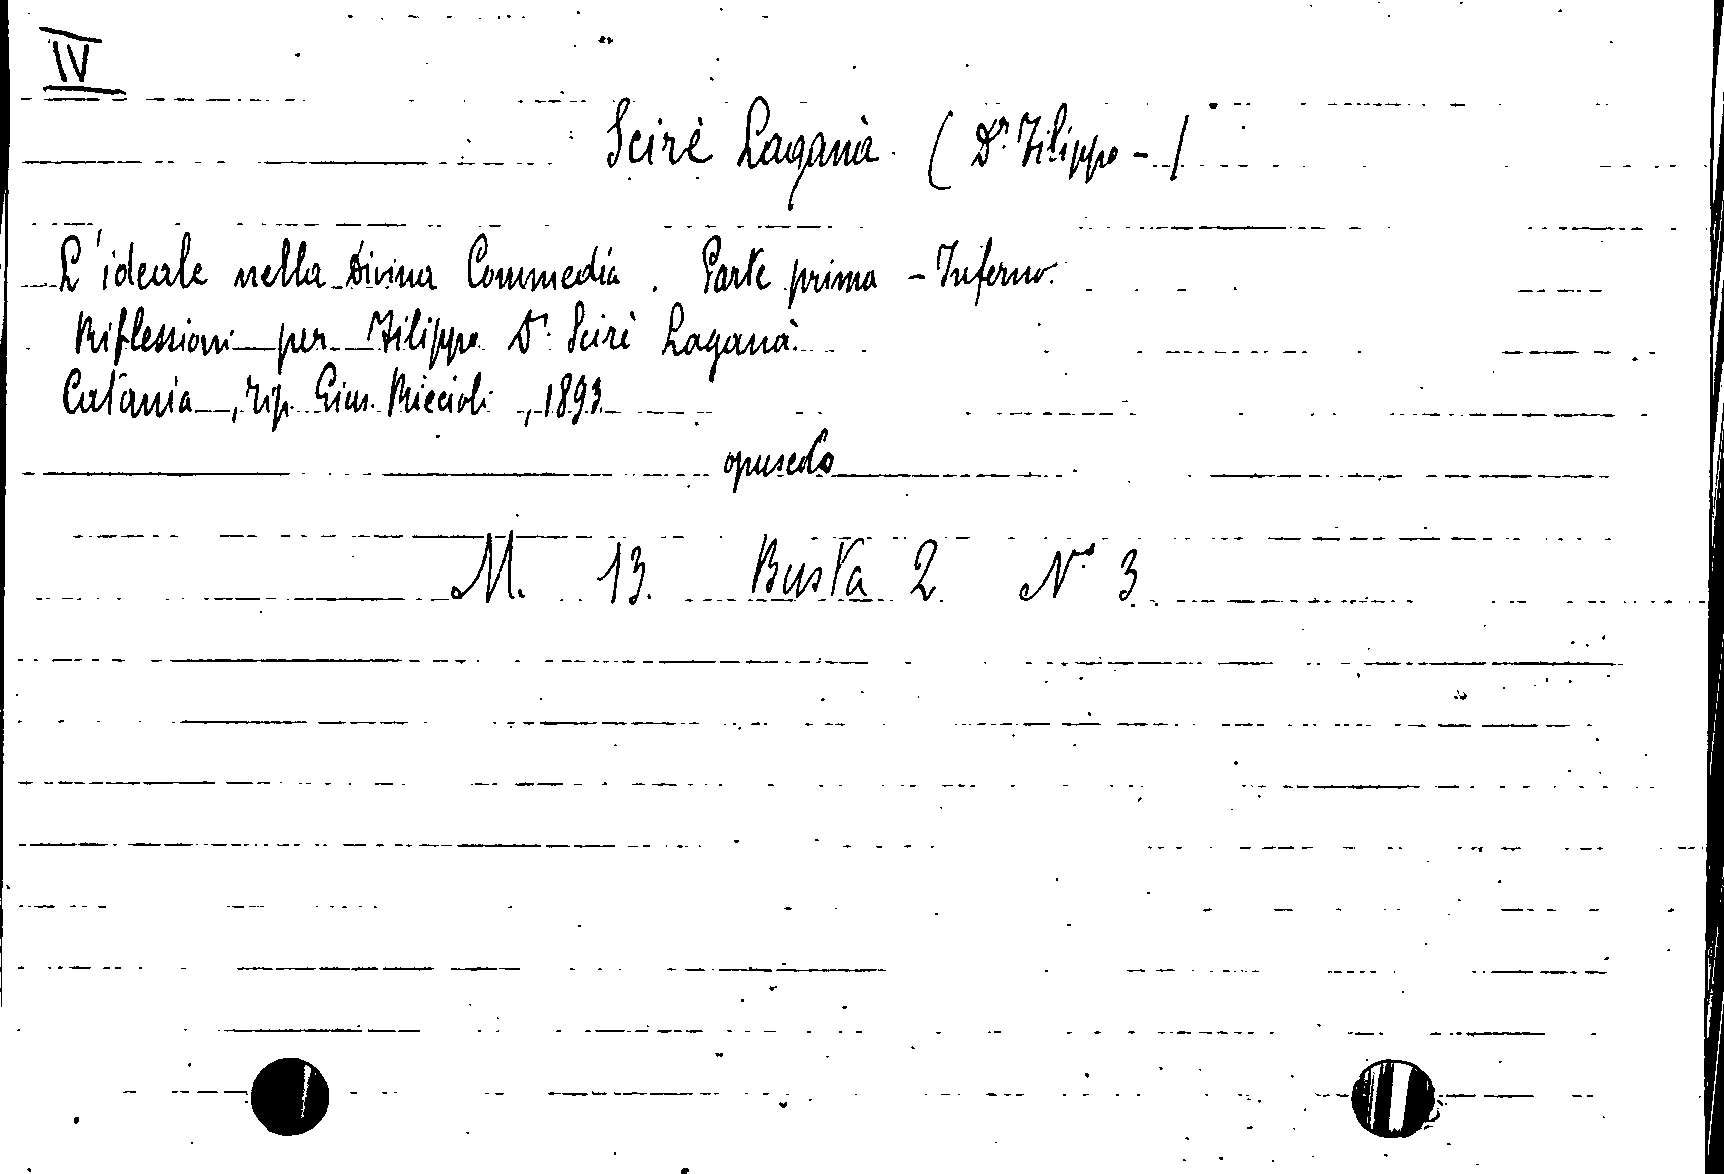 IV
Scirè Laganà (Dr. Filippo - )
L'ideale nella Divina Commedia. Parte prima - Inferno.
Riflessioni per Filippo Dr. Scirè Laganà.
Catania, tip. Gius. Riccioli, 1893
opuscolo
M. 13. Busta 2 No 3.